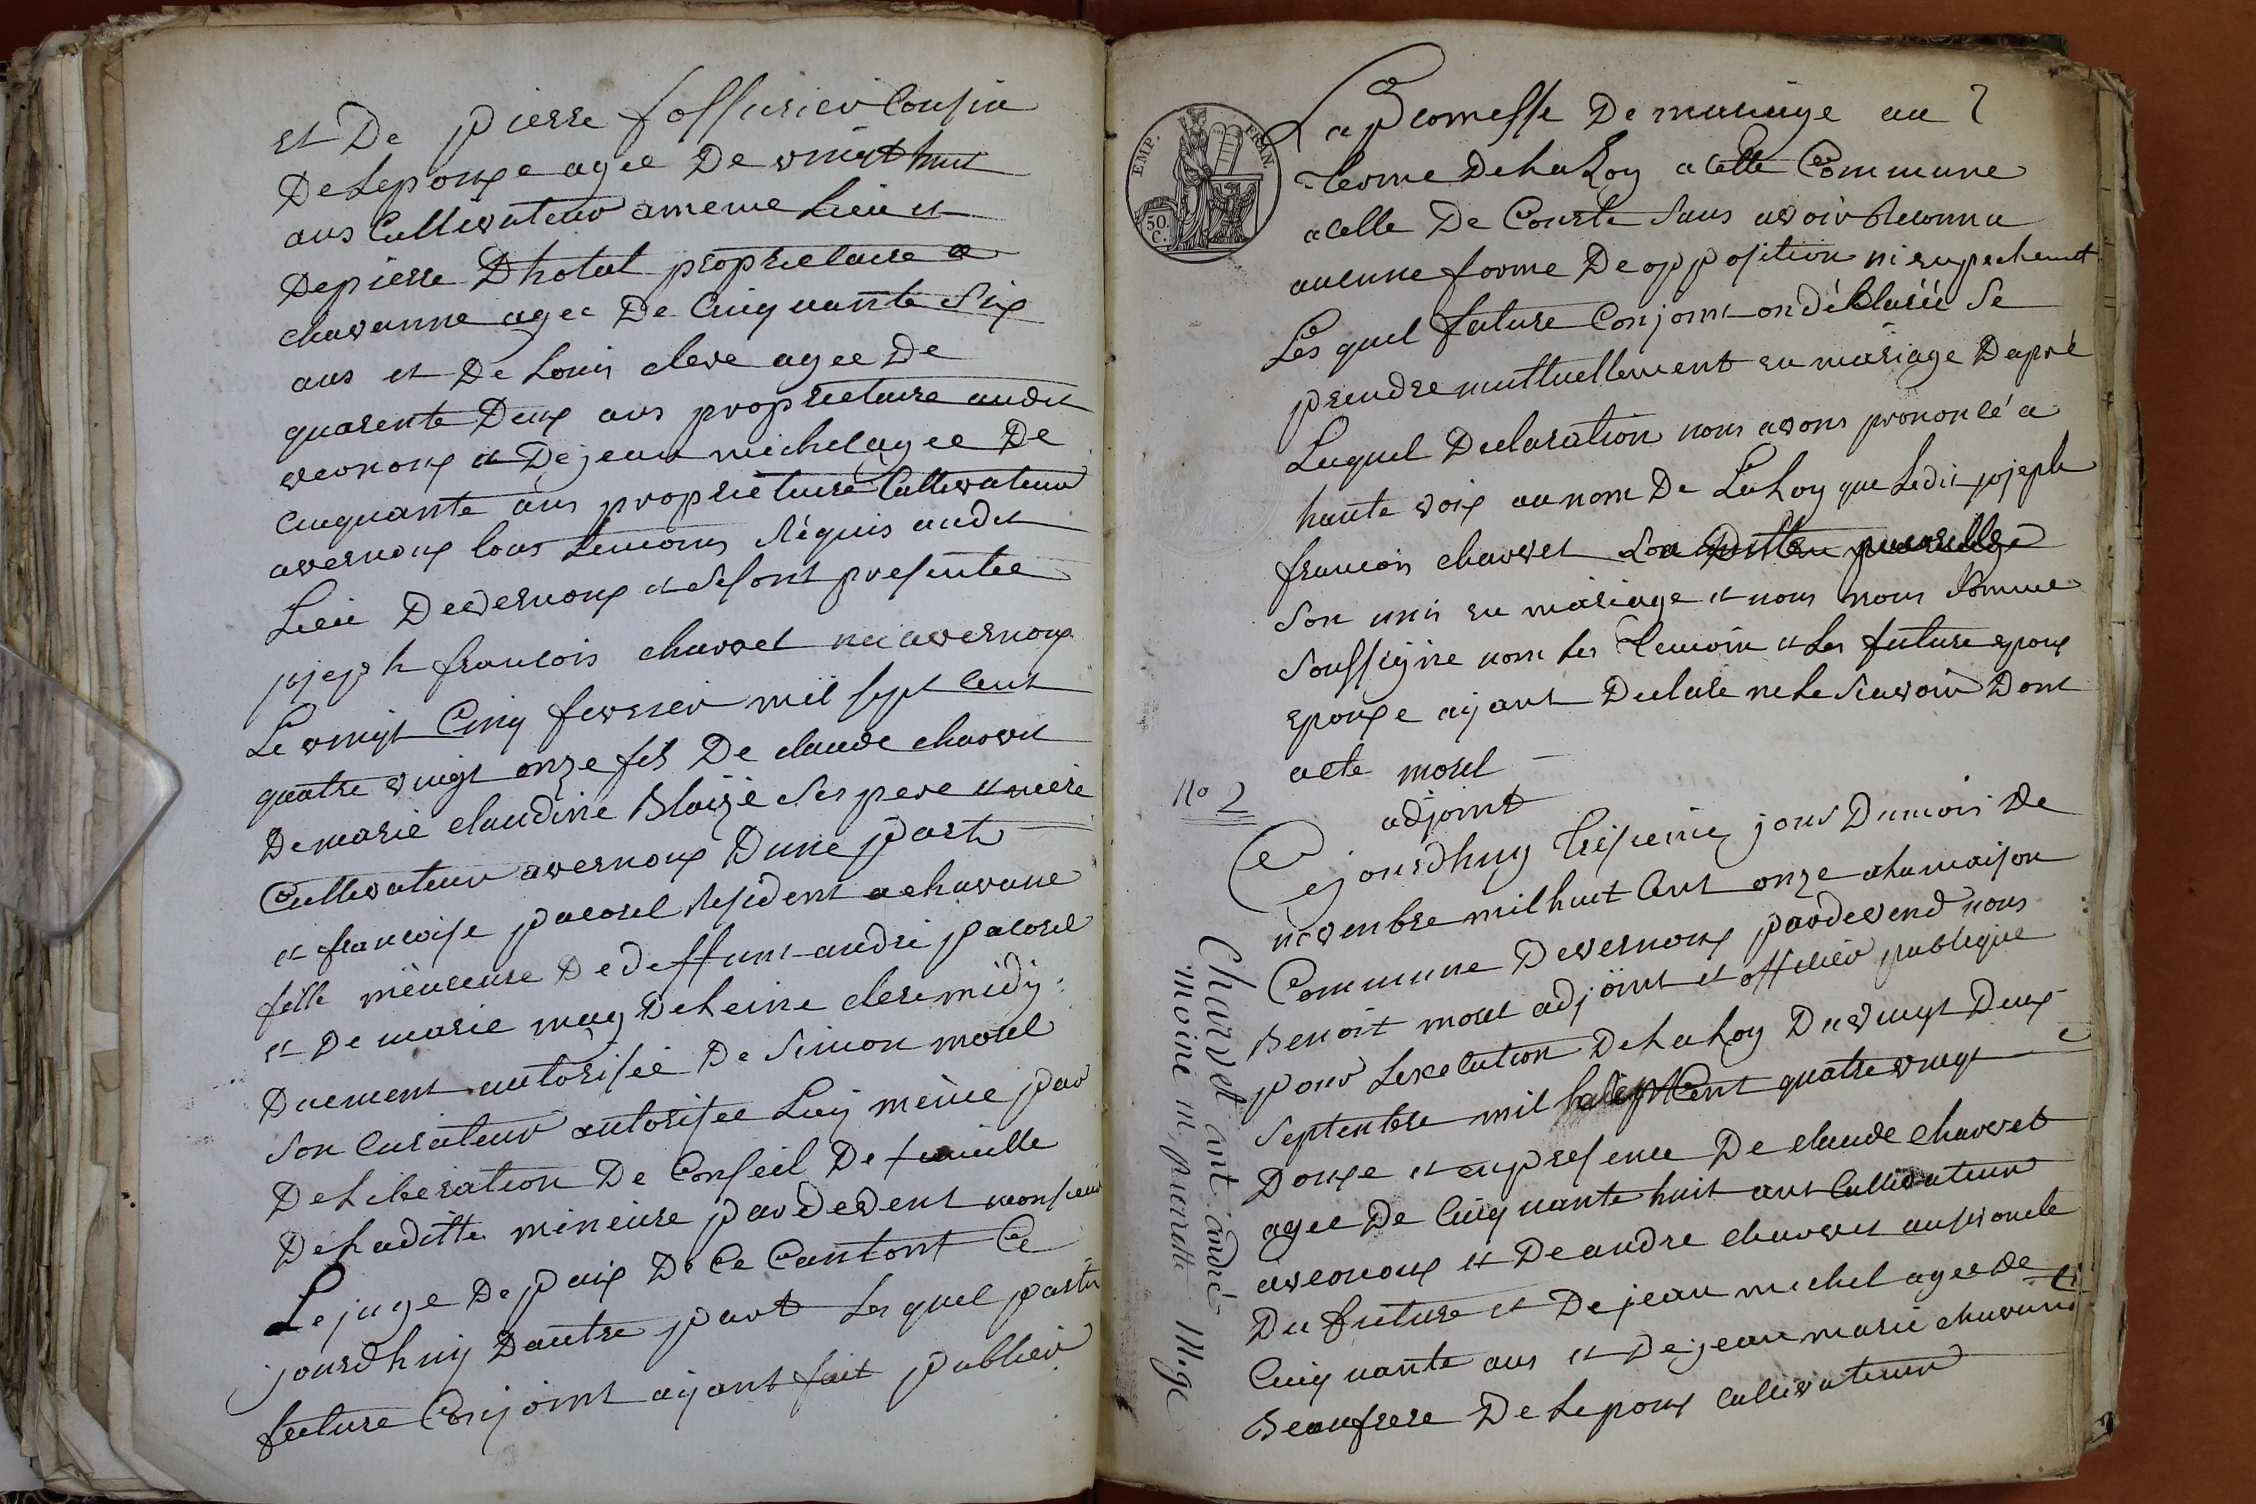 et De pierre fossurier Cousin
De Lepouxe agee De vingt huit
ans Cultivateur a meme Lieu et
De pierre Dhotal proprietaire a
chavanne agee De Cinquante Six
ans et De Louis cleve agee De
quarente Deux ans proprietaire audit
vernoux et De jean michel agee De
cinquante ans proprietaire Cultivateur
avernoux tous temoins Réquis audit
Lieu De vernoux et Se sont presentée
jojeph francois charvet né avernoux
Le vingt Cinq fevrier mil sept Cent
quatre vingt onze fils De claude charvet
De marie claudine Blaize Ses pere et mere
Cultivateur avernoux Dune part
et francoise pacorel Resident a chavane
fille mineure De deffunt andré pacorel
et De marie mag Deleine cleremidy
Duement autorisée De Simon morel
Son Curateur autorisee Luy même par
Deliberation De Conseil De famille
De Laditte mineure pardevent monsieur
Le juge De paix De Ce Cantont Ce
jourdhuy Dautre part Les quel partie
future Conjoint ayant fait publier
EMP. FRAN.
50. C.
La promesse De mariage au
terme De La Loy a Cette Commune
a Celle De Courte Sans avoir Reconnu
aucune forme De opposition ni enpechement
Les quel future Conjoint on déClarée Se
prendre muttuellement en mariage Dapré
Lequel Declaration nous avons prononcé a
haute voix au nom De La Loy que Ledit jojeph
francois charvet
Son unis en mariage et nous nous Somme
Soussigne nom Les temoin et Les future epoux
epouxe ayant Declaré ne Le Scavoir Dont
acte morel
adjoint
No 2
Charvet ant. andré
moine m. pierrette III.ge
Ce jourdhuy treisieme jour Du mois De
novembre mil huit Cent onze a La maison
Commune De vernoux pardevend nous
Benoit morel adjoint et officiér publique
pour Lexecution De La Loy Du vingt Deux
Septembre mil sept Cent quatre vingt
Douxe et en presence De claude charvet
agee De Cinquante huit ans Cultivateur
avernoux et De andre charvet aussi oncle
Du future et De jean michel agee De
Cinquante ans et De jean marie chavand
Beaufrere De Lepoux Cultivateur